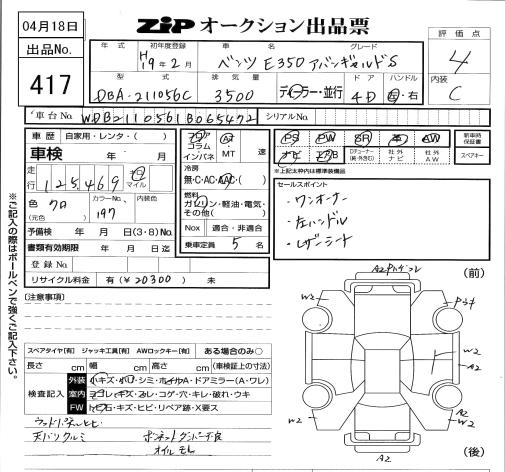 04月18日
ZIP オークション出品票
出品No.
417
年式 初年度登録 車名 グレード
H19年2月 ベンツ E350 アバンギャルドS
評価点
4
型式 排気量 ディーラー・並行 ドア ハンドル
DBA-211056C 3500 4D 左・右
内装
C
車台No. WDB2110561B065472 シリアルNo.
車歴 自家用・レンタ・( )
車検 年 月
走行 125,469 キロ マイル
色 クロ カラーNo. 197 内装色
(元色)
予備検 年 月 日(3・8)No.
書類有効期限 年 月 日迄
登録No.
リサイクル料金 有(¥20300) 未
フロア コラム インパネ AT・MT 速
冷房
無・C・AC・AAC・( )
燃料
ガソリン・軽油・電気・その他( )
Nox 適合・非適合
乗車定員 5 名
PS PW SR 革 AW
ナビ エアB Dチューナー(純・外含む) 社外ナビ 社外AW
新車時保証書
スペアキー
*上記太枠内は標準装備品
セールスポイント
・ワンオーナー
・左ハンドル
・レザーシート
※ご記入の際はボールペンで強くご記入下さい。
[注意事項]
スペアタイヤ[有] ジャッキ工具[有] AWロックキー[有] ある場合のみ○
長さ cm 幅 cm 高さ cm (車検証上の寸法)
検査記入
外装 小キズ・小凹・シミ・ホイルA・ドアミラー(A・ワレ)
室内 ヨゴレ・キズ・スレ・コゲ・穴・キレ・破れ・ウキ
FW 飛石・キズ・ヒビ・リペア跡・X要ス
ウッドパネルヒビ
天バリクルミ ボンネットダンパー不良
オイルモレ
(前)
W2
W2
W2
A2
A2
W2
W2
A2
(後)